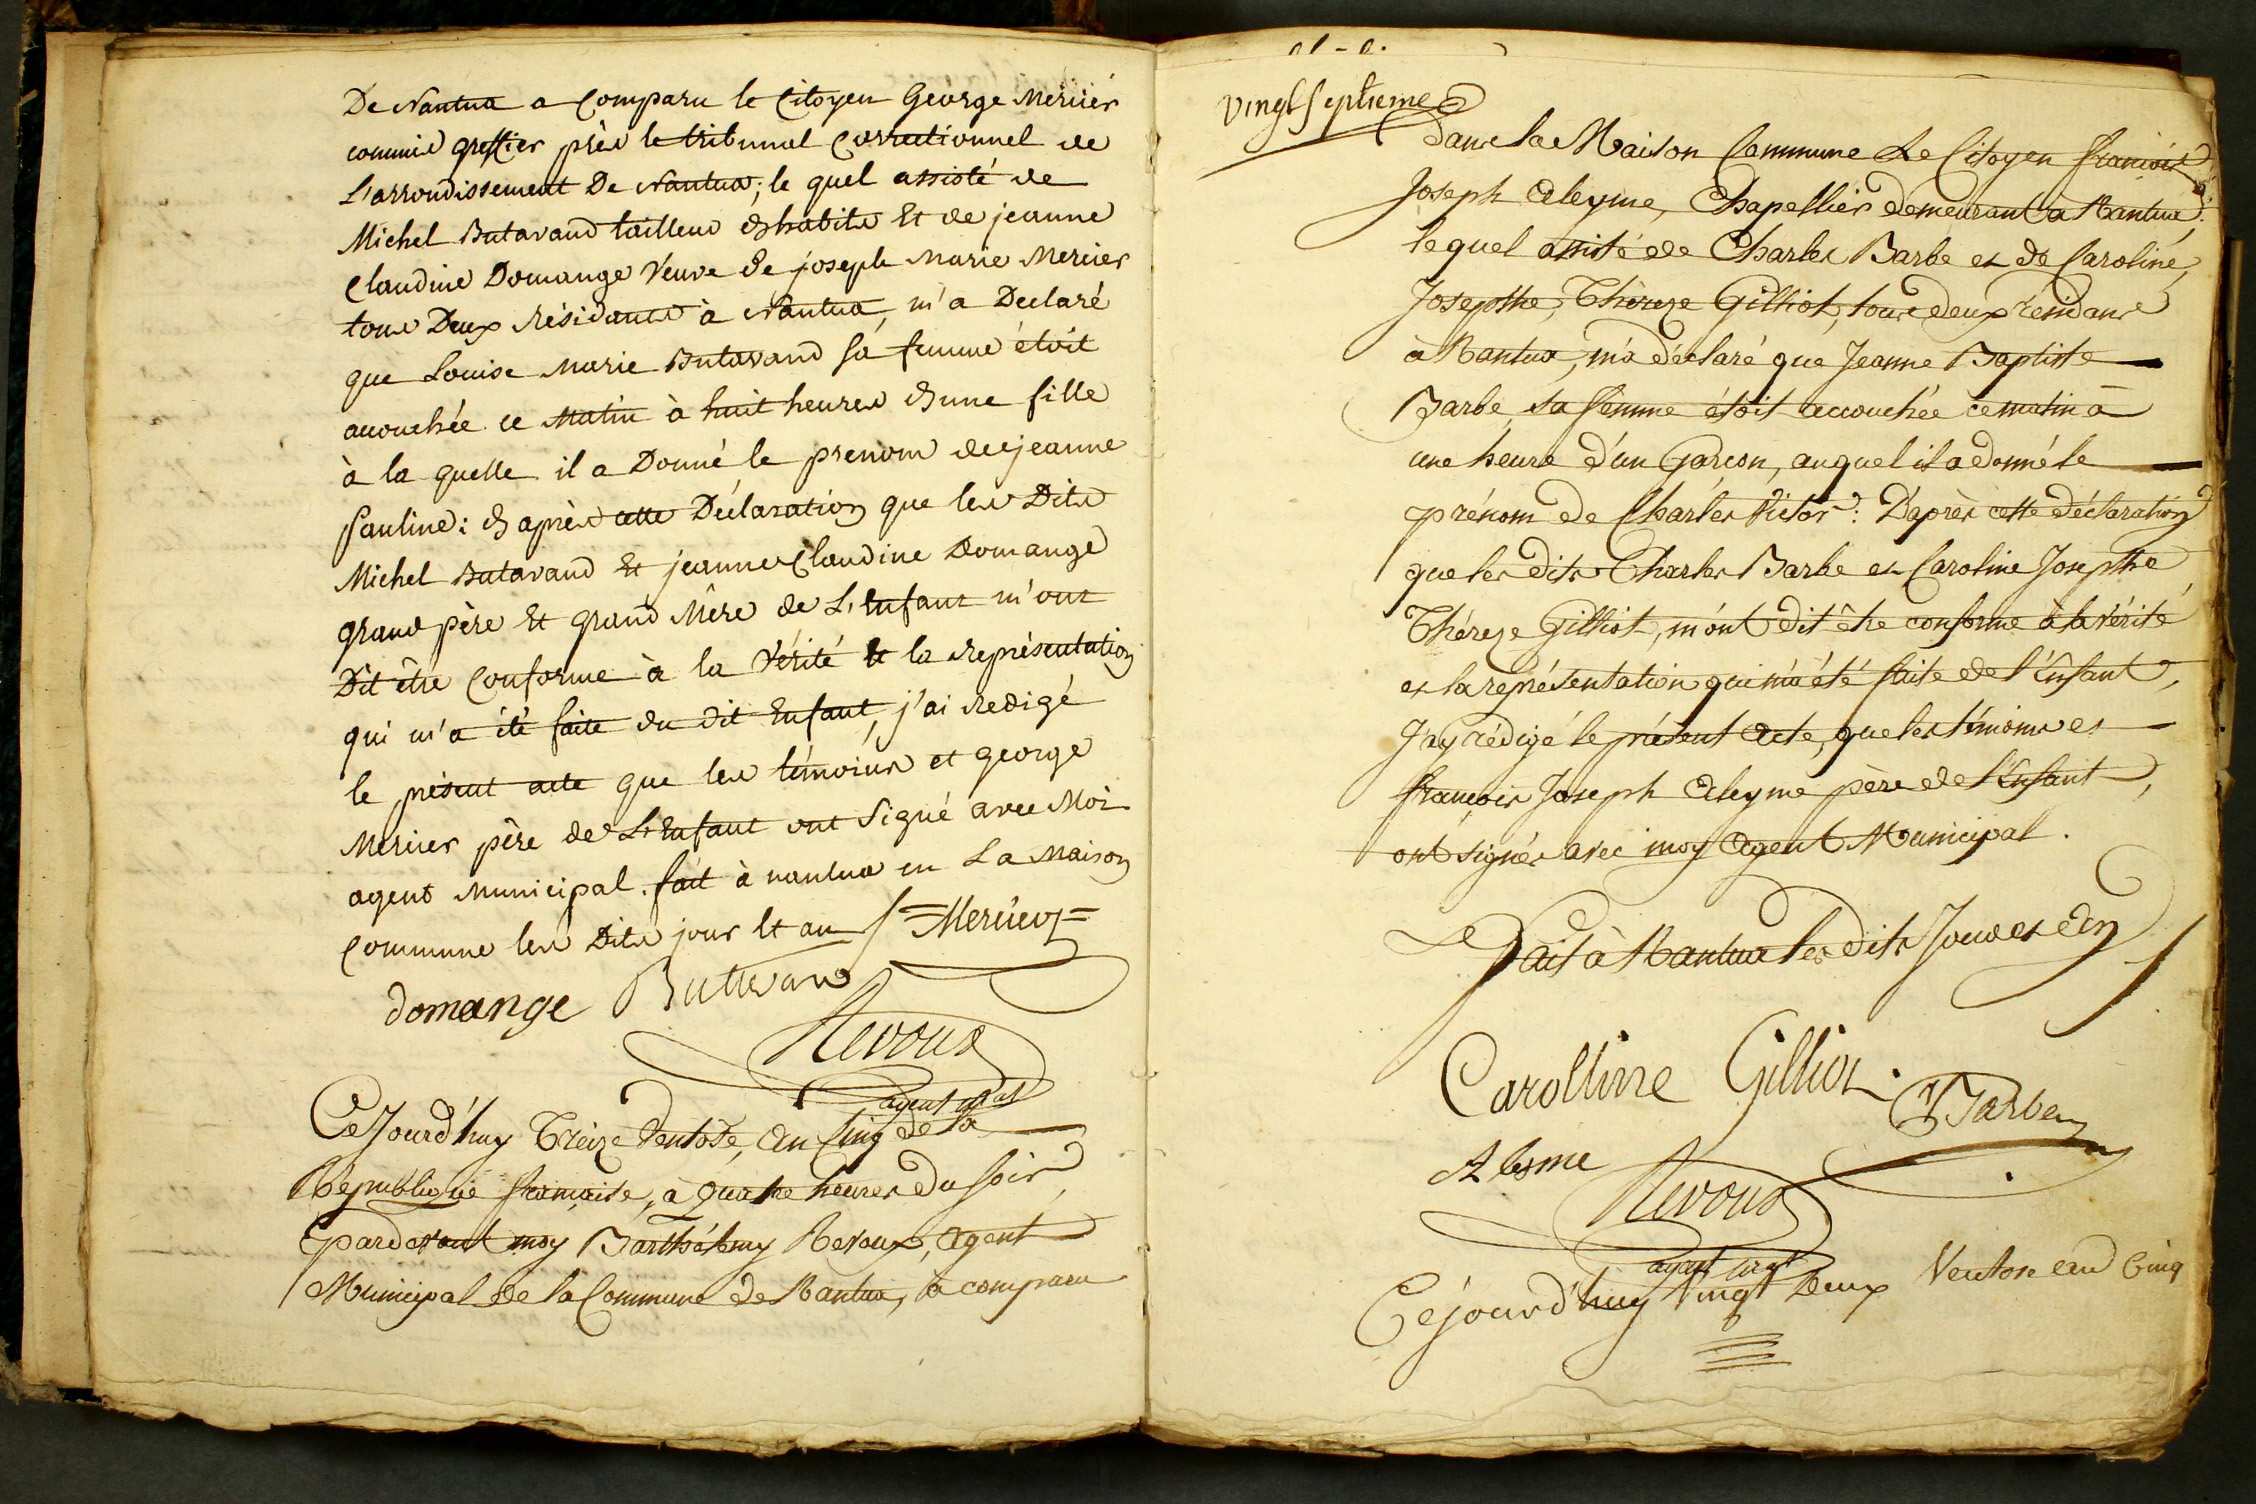 De Nantua a Comparu le Citoyen George Mercier
commis greffier près le tribunal Correctionnel de
L'arrondissement De Nantua; le quel assisté de
Michel Butavand tailleur d'habits Et de jeanne
Claudine Domange Veuve de joseph Marie Mercier
tous Deux Résidants à Nantua, m'a Declaré
que Louise Marie Butavand sa femme étoit
accouchée ce Matin à huit heures d'une fille
à la quelle il a Donné le prenom de jeanne
Pauline: d'après cette Déclaration que les Dits
Michel Butavand Et jeanne Claudine Domange
grand père Et grand Mère de L'Enfant m'ont
Dit être Conforme à la Vérité Et la Représentation
qui m'a été faite du dit Enfant, j'ai Redigé
le présent acte que les témoins et George
Mercier père de L'Enfant ont Signé avec Moi
agent Municipal. fait à nantua en La Maison
Commune les Dits jour Et an Mercier
domange Buttavand
Revoux
agent mpal
Cejourd'huy Treize Ventôse, an Cinq de la
République française, à quatre heures du soir,
pardevant moy Barthélemy Revoux, Agent
Municipal de la Commune de Nantua, a comparu
Vingt septieme
dans la Maison Commune Le Citoyen françois
Joseph Aleyme, Chapellier demeurant à Nantua:
lequel assisté de Charles Barbe et de Caroline,
Josepthe, Thérèze Gilliot, tous deux résidans
à Nantua, m'a déclaré que Jeanne Baptiste
Barbe sa femme étoit accouchée ce matin à
une heure d'un Garçon, auquel il a donné le
prénom de Charles Victor: D'après cette déclaration
que les dits Charles Barbe et Caroline Josepthe
Thérèze Gilliot, m'ont dit être conforme à la vérité
et la représentation qui m'a été faite de l'Enfant,
J'ay rédigé le présent acte, que les témoins et
françois Joseph Aleyme père de l'Enfant,
ont signés avec moy Agent Municipal.
Fait à Nantua les dits Jour et an
Carolline Gilliot. Barbe
Alesme
Revoux
agent mpal
Cejourd'huy Vingt Deux Ventose an Cinq